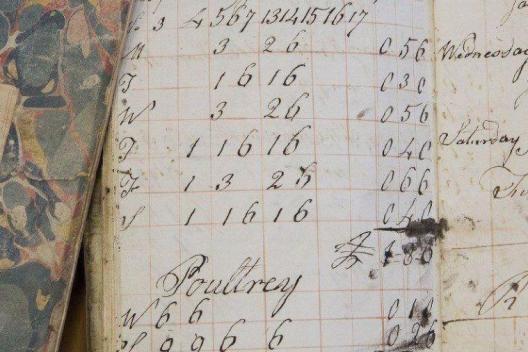 3 4 5 6 7 13 14 15 16 17
M 3 2 6 0 5 6
T 1 6 1 6 0 3 0
W 3 2 6 0 5 6
T 1 1 6 1 6 0 4 0
F 1 3 2 0 6 6
S 1 1 6 1 6 0 4 0
Poultrey
W 6 6 0 1
S 9 9 6 6 0 2 6
Wednesday
Saturday